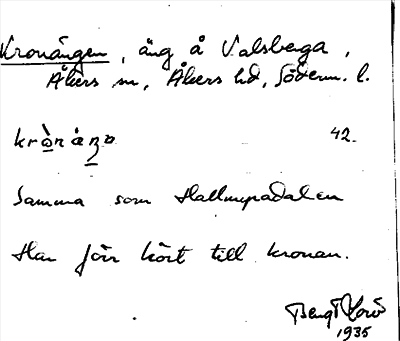 Kronängen, äng å Valsberga,
Åkers sn, Åkers hd, Söderm. l.
42.
Samma som
Har förr hört till kronan.
Bengt
1935